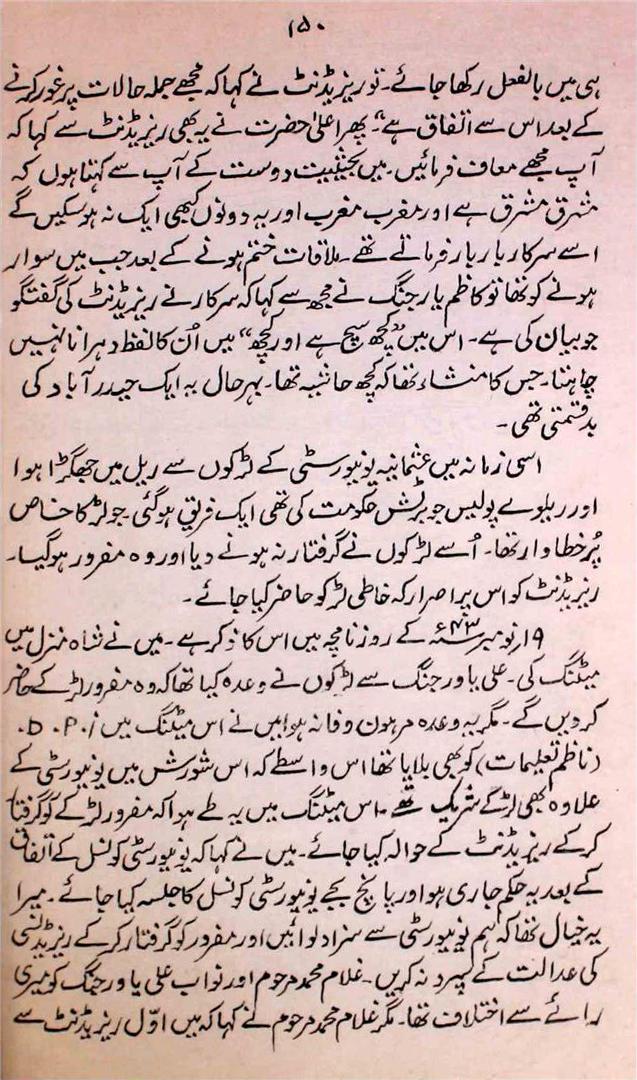 ۱۵۰
ہی میں بالفعل رکھا جائے۔ تو ریزیڈنٹ نے کہا کہ مجھے جملہ حالات پر غور کرنے
کے بعد اس سے اتفاق ہے“۔ پھر اعلیٰ حضرت نے یہ بھی ریزیڈنٹ سے کہا کہ
آپ مجھے معاف فرمائیں۔ میں بحیثیت دوست کے آپ سے کہتا ہوں کہ
مشرق مشرق ہے اور مغرب مغرب اور یہ دونوں کبھی ایک نہ ہو سکیں گے
اسے سرکار بار بار فرماتے تھے۔ ملاقات ختم ہونے کے بعد جب میں سوار
ہونے کو تھا تو کاظم یار جنگ نے مجھ سے کہا کہ سرکار نے ریزیڈنٹ کی گفتگو
جو بیان کی ہے۔ اس میں ”کچھ سچ ہے اور کچھ“ میں اُن کا لفظ دہرانا نہیں
چاہتا۔ جس کا منشاء تھا کہ کچھ حاشیہ تھا۔ بہر حال یہ ایک حیدرآباد کی
بدقسمتی تھی۔
اسی زمانہ میں عثمانیہ یونیورسٹی کے لڑکوں سے ریل میں جھگڑا ہوا
اور ریلوے پولیس جو برٹش حکومت کی تھی ایک فریق ہو گئی۔ جو لڑکا خاص
پُر خطا وار تھا۔ اُسے لڑکوں نے گرفتار نہ ہونے دیا اور وہ مفرور ہو گیا۔
ریزیڈنٹ کو اس پر اصرار کہ خاطی لڑکو حاضر کیا جائے۔
۱۹؍ نومبر ۴۳ء کے روزنامچہ میں اس کا ذکر ہے۔ میں نے شاہ منزل میں
میٹنگ کی۔ علی یاور جنگ سے لڑکوں نے وعدہ کیا تھا کہ وہ مفرور لڑکے حاضر
کر دیں گے۔ مگر یہ وعدہ مرہون وفا نہ ہوا میں نے اس میٹنگ میں D.P.I.
(ناظم تعلیمات) کو بھی بلایا تھا اس واسطے کہ اس شورش میں یونیورسٹی کے
علاوہ بھی لڑکے شریک تھے۔ اس میٹنگ میں یہ طے ہوا کہ مفرور لڑکے کو گرفتار
کر کے ریزیڈنٹ کے حوالہ کیا جائے۔ میں نے کہا کہ یونیورسٹی کونسل کے اتفاق
کے بعد یہ حکم جاری ہو اور پانچ بجے یونیورسٹی کونسل کا جلسہ کیا جائے۔ میرا
یہ خیال تھا کہ ہم یونیورسٹی سے سزا دلوائیں اور مفرور کو گرفتار کر کے ریزیڈنسی
کی عدالت کے سپرد نہ کریں۔ غلام محمد مرحوم اور نواب علی یاور جنگ کو میری
رائے سے اختلاف تھا۔ مگر غلام محمد مرحوم نے کہا کہ میں اوّل ریزیڈنٹ سے